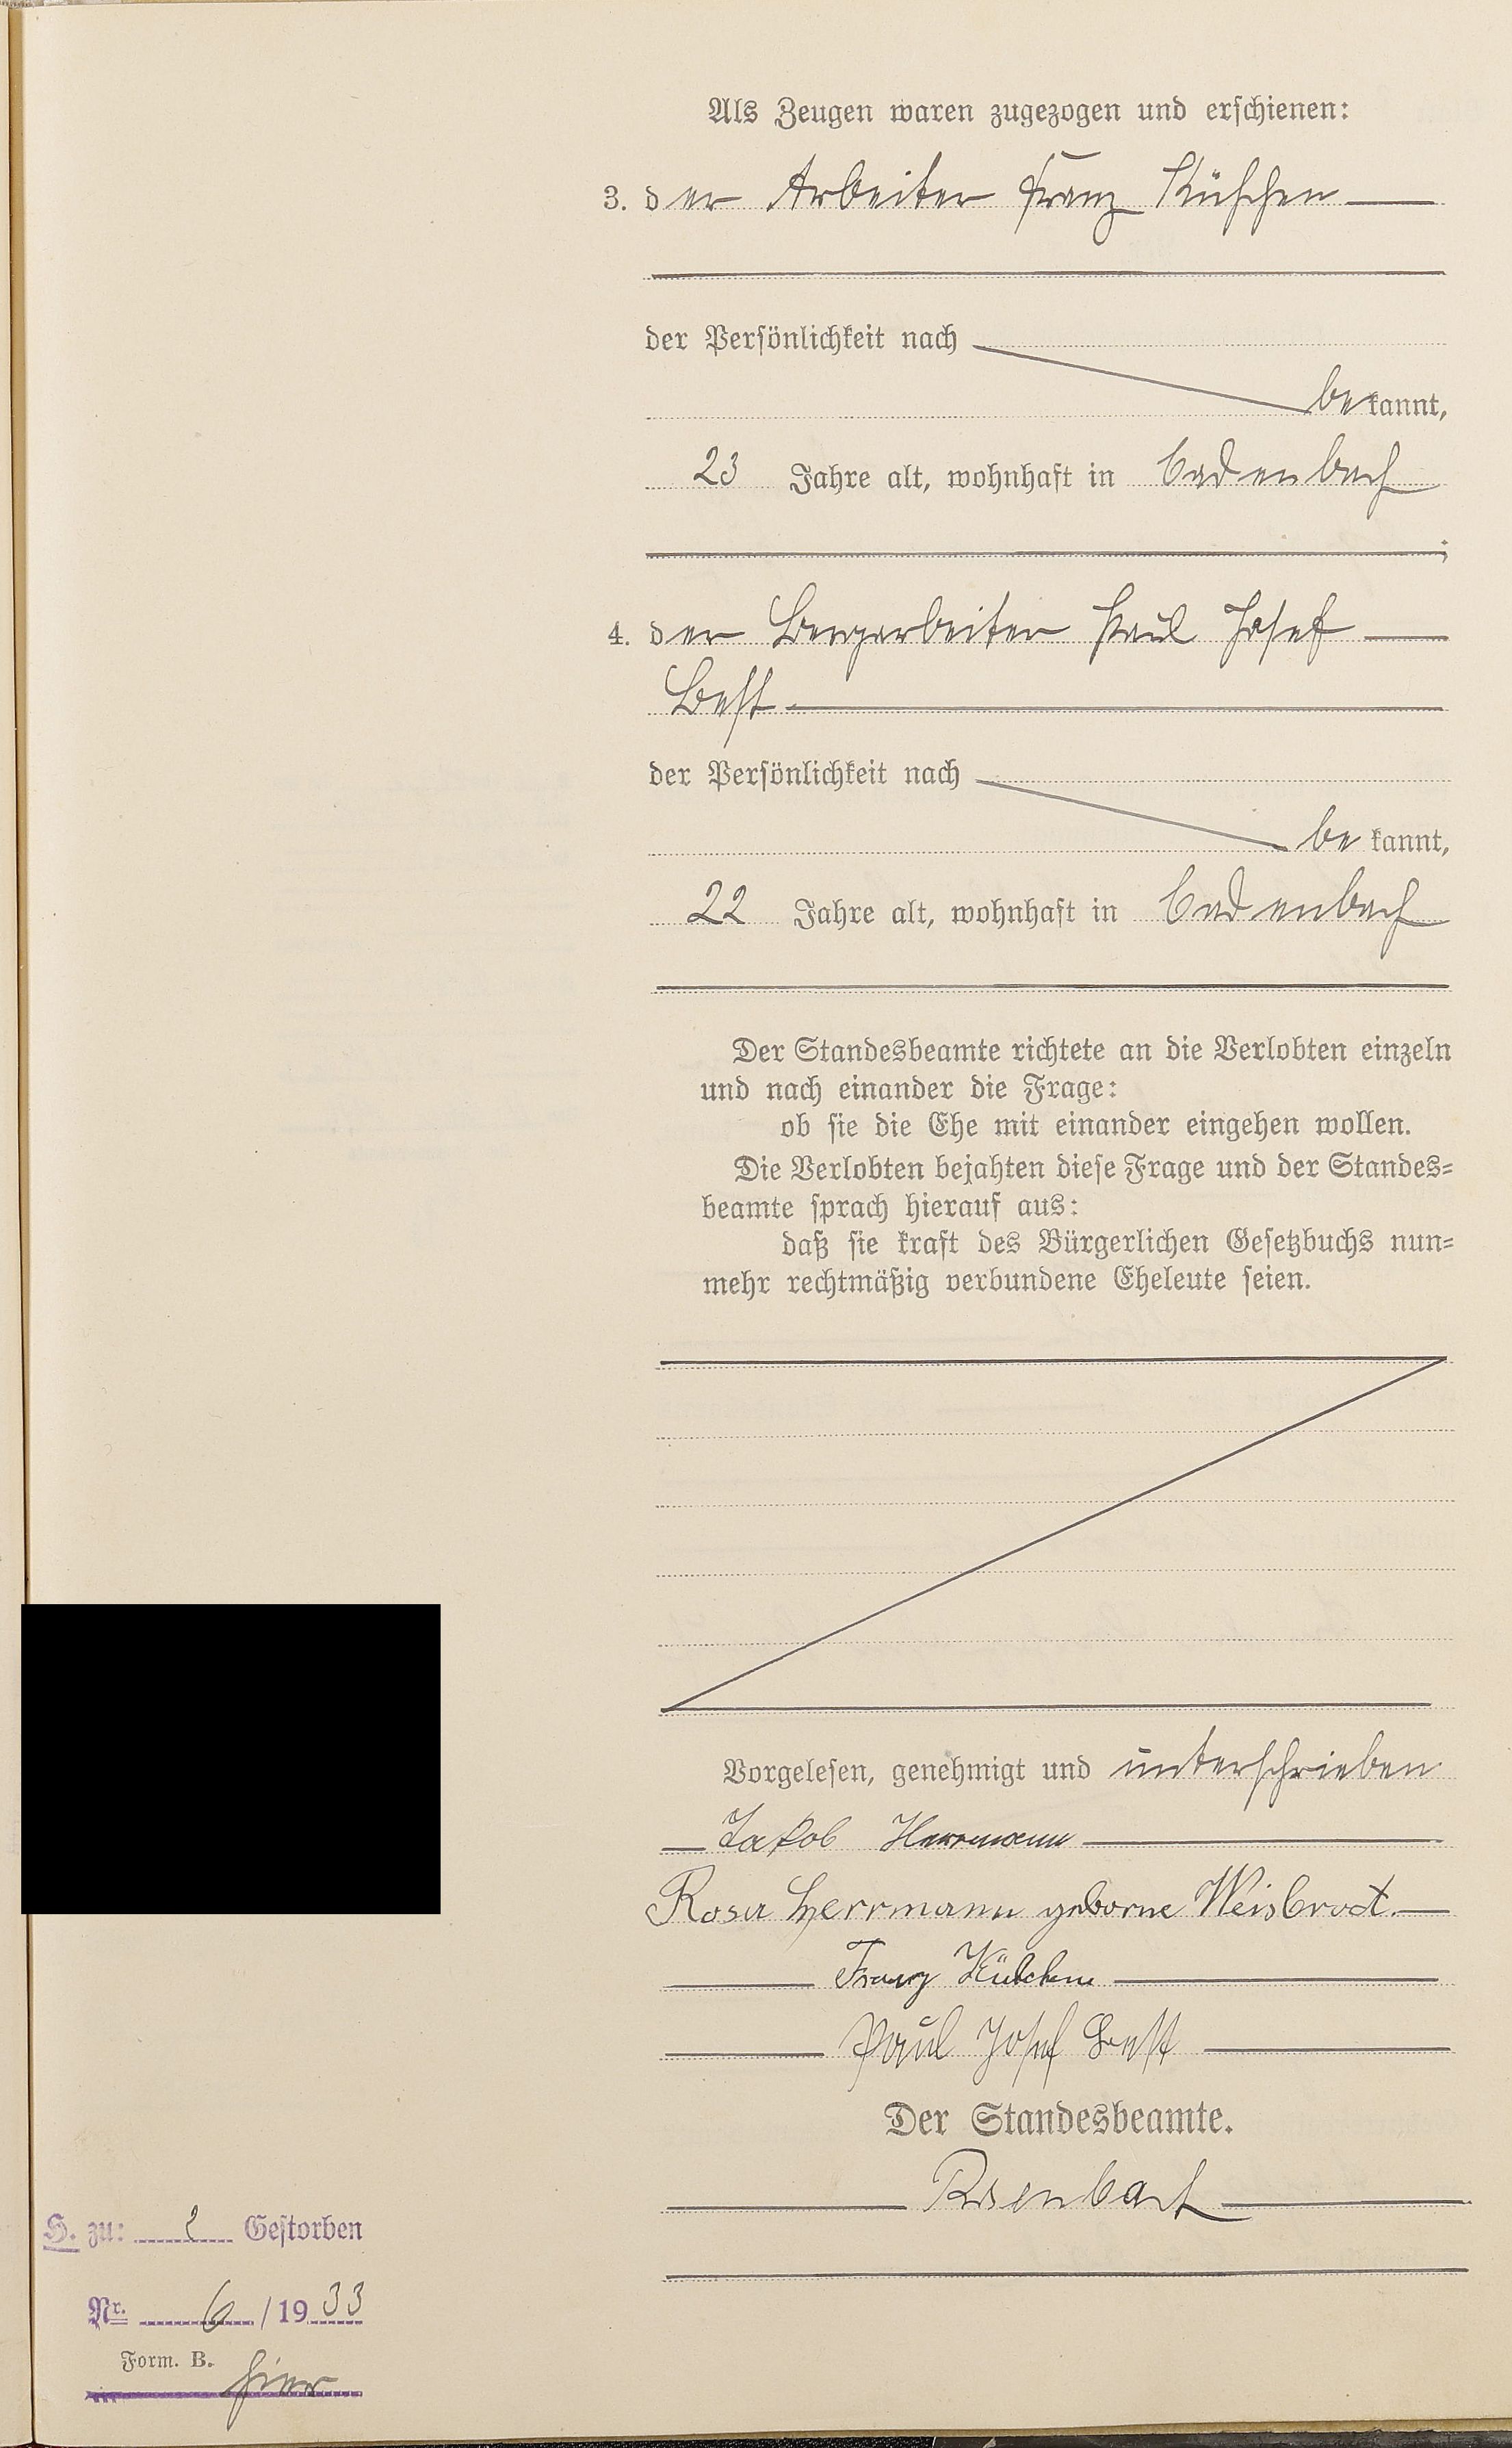 Als Zeugen waren zugezogen und erschienen:
3. der Arbeiter Franz Küschen
der Persönlichkeit nach
bekannt,
23 Jahre alt, wohnhaft in Cadenbach
;
4. der Bergarbeiter Paul Josef
Best
der Persönlichkeit nach
bekannt,
22 Jahre alt, wohnhaft in Cadenbach
Der Standesbeamte richtete an die Verlobten einzeln
und nach einander die Frage:
ob sie die Ehe mit einander eingehen wollen.
Die Verlobten bejahten diese Frage und der Standes=
beamte sprach hierauf aus:
daß sie kraft des Bürgerlichen Gesetzbuchs nun=
mehr rechtmäßig verbundene Eheleute seien.
Vorgelesen, genehmigt und unterschrieben
Jakob Herrmann
Rosa Herrmann geborne Weisbrod.
Franz
Paul Josef Best
Der Standesbeamte.
H. zu: 2 Gestorben
Nr. 6 / 1933
Form. B.
hier